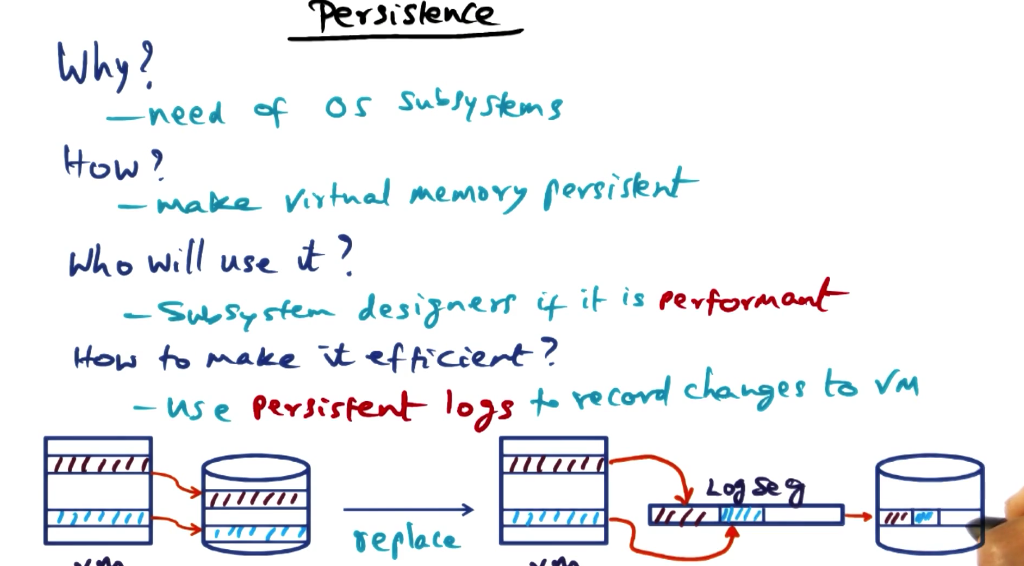 Persistence
Why?
— need of OS subsystems
How?
— make virtual memory persistent
Who will use it?
— Subsystem designers if it is performant
How to make it efficient?
— Use persistent logs to record changes to VM
Log seg
replace